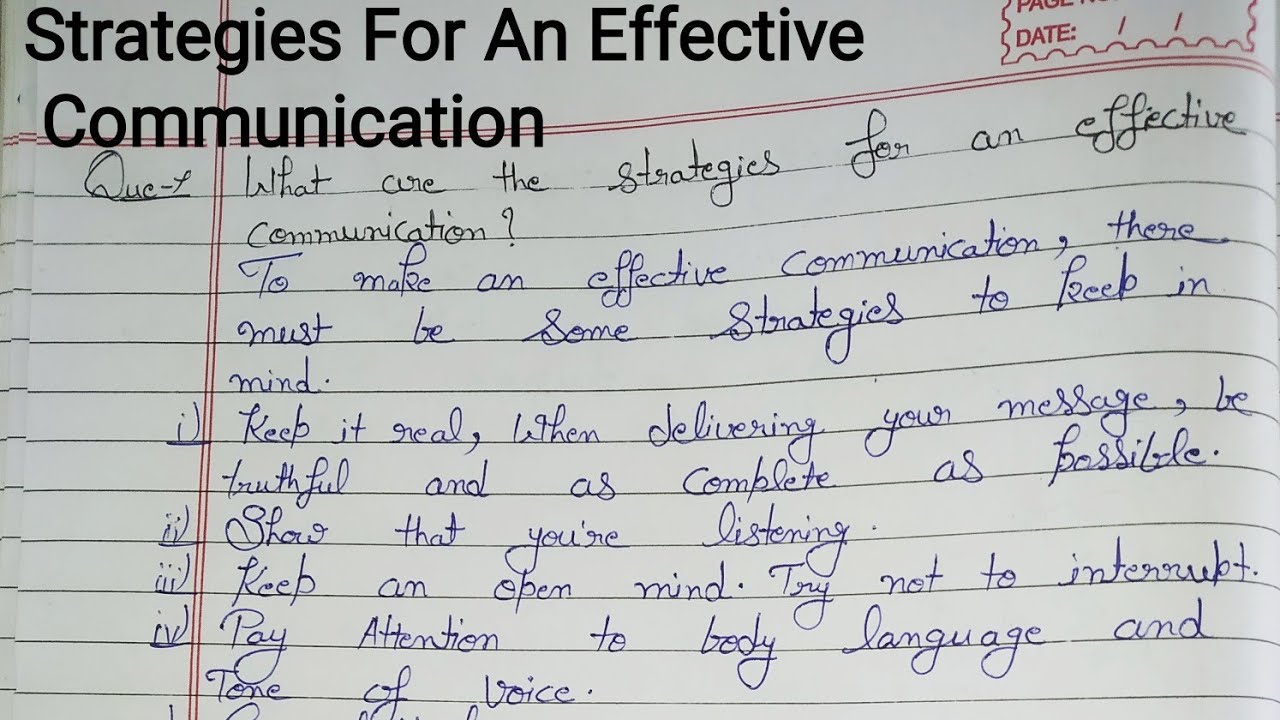 Strategies For An Effective
Communication
PAGE
DATE: / /
Que-1 What are the strategies for an effective
communication?
To make an effective communication, there
must be some strategies to keep in
mind.
i) Keep it real, When delivering your message, be
truthful and as complete as possible.
ii) Show that you're listening.
iii) Keep an open mind. Try not to interrupt.
iv) Pay Attention to body language and
Tone of voice.